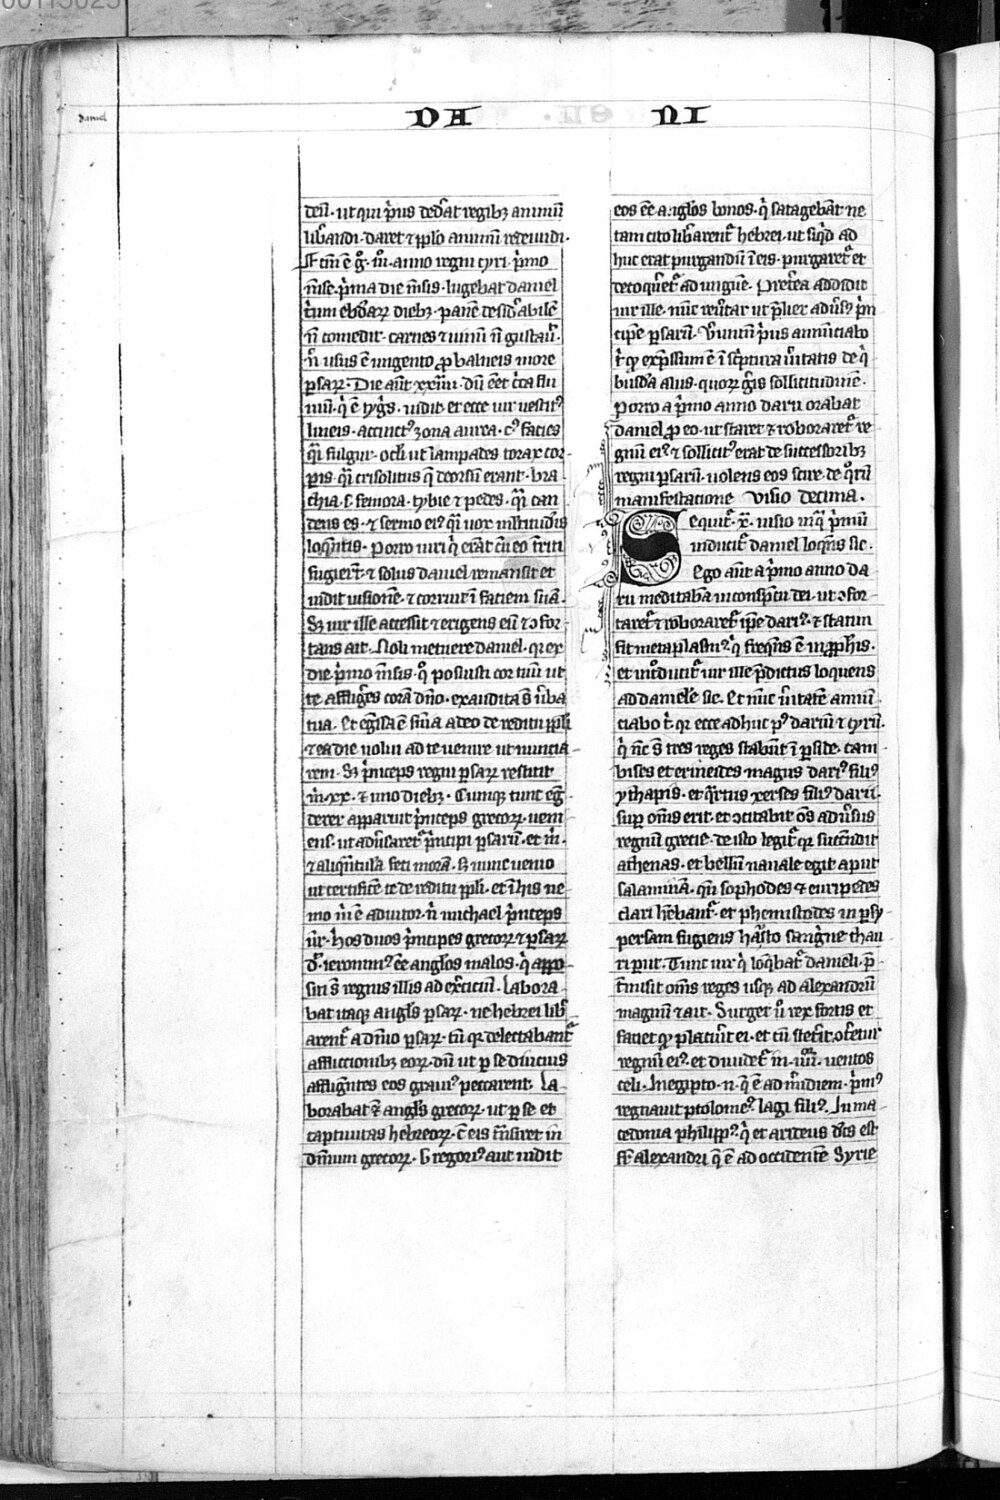 00113025
daniel
DA NI
deū · ut qui p̄us ded̾at regibꝫ animū
lib̾andi · daret ⁊ pp̄lo animū redeundi ·
Fc̄m ē g̊ · m̊ · anno regni cyri · p̄mo
m̄se · p̄ma die m̄sis · lugebat daniel
t̄um ebd̾arꝝ diebꝫ · panē desid̾abilē
n̄ comedit · carnes ⁊ uinū n̄ gustau̾ ·
n̄ usus ē ungento ꝓ balneis more
ꝑsarꝝ · Die aūt xxiiii · dū eēt c̾ca flu
uiū · q̄ ē tyg̾s · uidit · et ecce uir uestitꝰ
lineis · accinctꝰ zona aurea · cꝰ facies
q̄i fulgur · oc̄li ut lampades torax cor
pis q̄i crisolitus q̄ deorsū erant · bra
chia · s · femora · tybie ⁊ pedes · q̄i can
dens es · ⁊ sermo eiꝰ q̄i uox multitudīs
loq̄ntis · Porro uiri q̄ erāt cū eo t̄riti
fugier̄t · ⁊ solus daniel remansit et
uidit uisionē · ⁊ corruit ī faciem suā ·
Sꝫ uir ille accessit ⁊ erigens eū ⁊ ↄfor
tans ait · Noli metuere daniel · qr ex
die p̄mo m̄sis · q̊ posuisti cor tuū ut
te afflig̾es corā dn̄o · exaudita s̄ u̾ba
tua · Et eg̾ssa ē s̄nia a deo de reditu pp̄li
⁊ ea die uolui ad te uenire ut nuncia
rem · Sꝫ p̄nceps regni ꝑsarꝝ restitit
m̄ · xx · ⁊ uno diebꝫ · Cumqꝫ tunc eg̾
derer apparuit p̄nceps grecorꝝ · ueni
ens · ut adu̾saret̾ p̄ncipi ꝑsarū · et m̄ ·
⁊ aliq̄ntulā feci morā · Sꝫ nunc uenio
ut certificē te de reditu pp̄li · et ī his ne
mo m̄ ē adiutor · n̄ michael p̄nceps
ur̄ · hos duos p̄ncipes grecorꝝ ⁊ ꝑsarꝝ
d̄r · ieronimꝰ eē angl̄os malos · q̄ appo
siti s̄ regnis illis ad ex̾ciciū · Labora
bat itaqꝫ angl̄s ꝑsarꝝ · ne hebrei lib̾
arent̾ a dn̄io ꝑsarꝝ · tū qr delectabant̾
afflictionibꝫ eorꝝ · dū ut ꝑ se diucius
affligētes eos grauiꝰ peccarent · La
borabat ⁊ angl̄s grecorꝝ · ut ꝑ se et
captiuitas hebreorꝝ · c̄ eis t̄nsiret in
dn̄ium grecorꝝ · Gregoriꝰ aut uidit
eos eē angl̄os bonos · q̄ satagebāt ne
tam cito lib̾arent̾ hebrei · ut siq̾d ad
huc erat purgandū ī eis · purgaret̾ et
decoq̾ret̾ ad unguē · Pret̾ea addidit
uir ille · nūc reu̾tar ut p̄lier adu̾sꝰ p̄n
cipē ꝑsarū · V̾umū p̾us annūciabo
t̄ qꝫ exp̄ssum ē ī sc̾ptura u̾itatis de q̄
busdā aliis · quorꝝ g̾is sollicitudinē ·
Porro a p̄mo anno darii orabat
daniel ꝓ eo · ut staret ⁊ roboraret̾ re
gnū eiꝰ ⁊ sollicitꝰ erat de successoribꝫ
regni ꝑsarū · uolens eos scire · de q̊rū
manifestacione Visio decima ·
Sequit̾ · x · uisio in q̄ p̄mū
inducit̾ daniel loq̄ns sic ·
Ego aūt a p̄mo anno da
rii meditabā in conspc̄u dei · ut ↄfor
taret̾ ⁊ roboraret̾ ip̄e dariꝰ · ⁊ statim
fit metaplasmꝰ · q̄ freq̄ns ē in ꝓph̄is ·
et int̾oducit̾ uir ille p̄dictus loquens
ad danielē sic · Et nūc u̾itatē annū
ciabo t̄ · qr ecce adhuc pꝰ dariū ⁊ cyrū ·
q̄ nc̄ s̄ tres reges stabūt ī ꝑside · cam
bises et ermeides magus dariꝰ filiꝰ
ythapis · et q̾rtus xerses filiꝰ darii ·
suꝑ om̄s erit · et ↄcitabit om̄s adu̾sus
regnū grecie · de isto legit̾ qr succendit
athenas · et bellū nauale egit aput
salaminā · qn̄ sophodes ⁊ euripedes
clari h̄ebant̾ · et phemistodes in ꝑsy
persam fugiens hausto sang̾ne thau
ri ꝑiit · Tunc uir q̄ loq̄bat̾ danieli · p̄
t̾misit om̄s reges usqꝫ ad alexandrū
magnū ⁊ ait · Surget u̾o rex fortis et
faciet qꝫ placuit ei · et cū stet̾it ↄt̾etur
regnū eiꝰ · et diuidet̾ in · iiii̊ · uentos
celi · In egipto · n · q̄ ē ad m̾idiem · p̄mꝰ
regnauit ptolomeꝰ · lagi filiꝰ · In ma
cedonia philippꝰ · q̄ et arideus dc̄s est
fr̄ alexandri q̄ ē ad occidentē Syrie